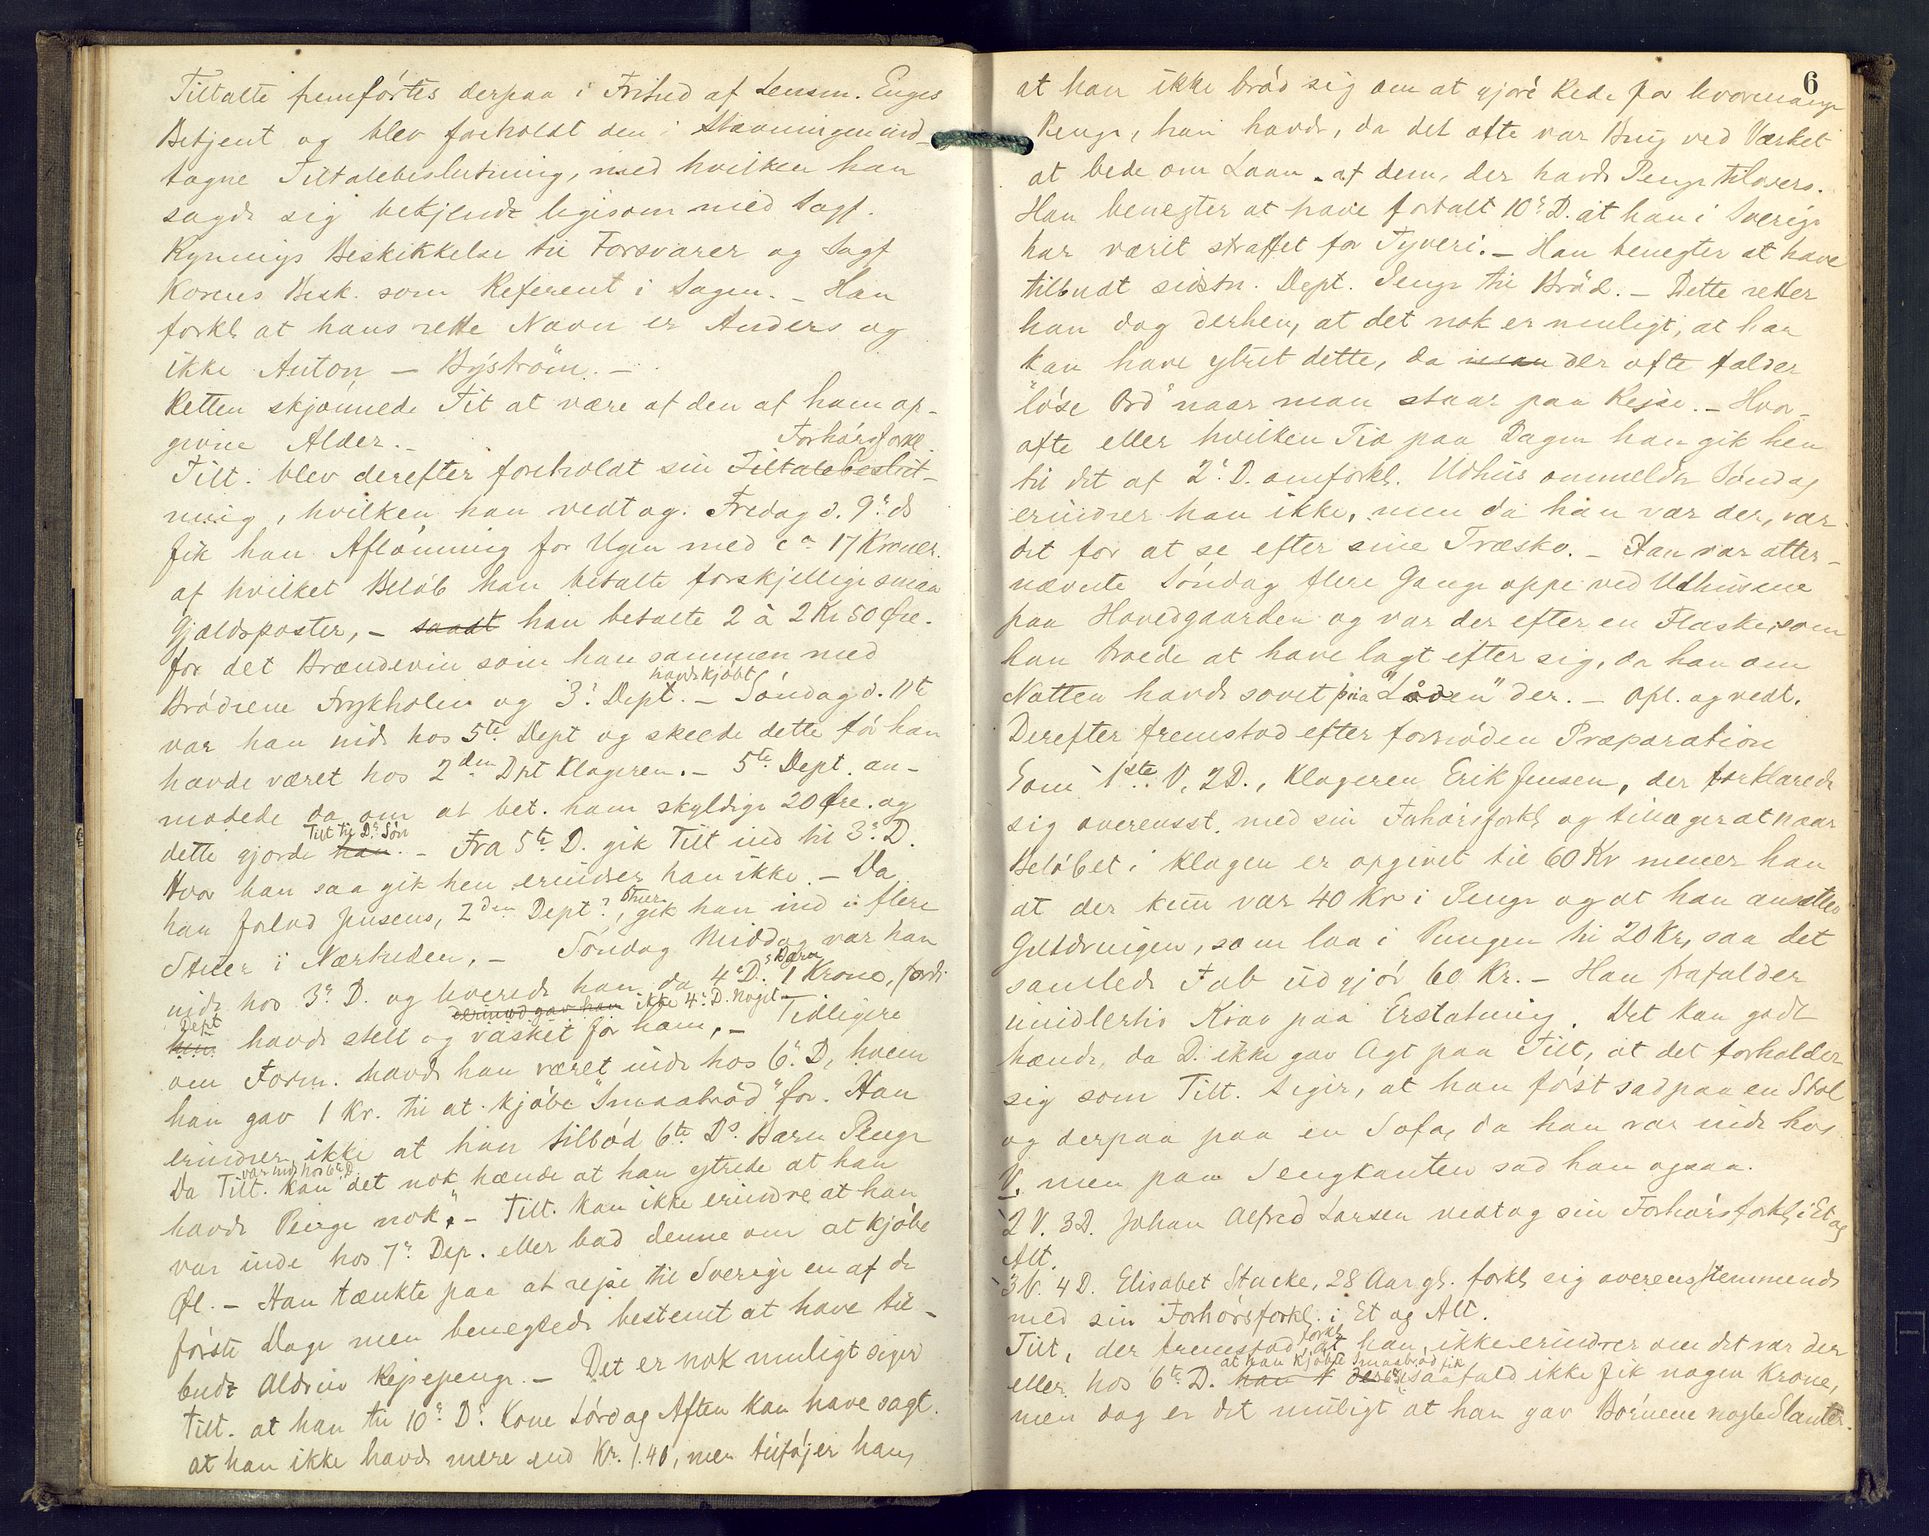 Tiltalte fremførtes derpaa i Frihed af Lensm. Enges
Betjent og blev foreholdt den i Stævningen ind-
tagne Tiltalebeslutning, med hvilken han
sagde sig bekjendt ligesom med Sagf.
Rynnings Beskikkelse til Forsvarer og Sagf
Korens Besk. som Referent i Sagen. – Han
forkl. at hans rette Navn er Anders og
ikke Anton – Byström. –
Retten skjønnede Tilt at være af den af ham op-
givne Alder. –
Forhørsforkl.
Tilt. blev derefter foreholdt sin Tiltalebeslut-
ning, hvilken han vedtog. Fredag d. 9' ds
fik han Aflønning for Ugen med ca 17 Kroner.
af hvilket Beløb han betalte forskjellige smaa
Gjældsposter, – saadt han betalte 2 à 2 Kr 50 Øre.
for det Brændevin som han sammen med
havde kjøbt
Brødrene Frykholm og 3' Dept. – Søndag d. 11te
var han inde hos 5te Dept og skeede dette før han
havde været hos 2den Dpt Klageren. – 5te Dept. an-
modede da om at bet. ham skyldige 20 Øre. og
Tilt til D's Søn
dette gjorde han. – Fra 5te D. gik Tilt ind til 3' D.
Hvor han saa gik hen erindrer han ikke. – Da
han forlod Jensens, 2den Dept', Stuer, gik han ind i flere
Stuer i Nærheden, – Søndag Middag var han
inde hos 3' D. og leverede han da 4' D.'s Børn 1 Krone, fordi
erindrer gav han ikke 4' D. noget –
Dept
hun havde stelt og vasket for ham, – Tidligere
om Form. havde han været inde hos 6' D, hvem
han gav 1 Kr. til at kjøbe "Smaabrød" for. Han
erindrer ikke at han tilbød 6te D's Børn Penge
var inde hos 6te D.
Da Tilt. kan det nok hænde at han ytrede at han
havde Penge nok". – Tilt. kan ikke erindre at han
var inde hos 7' Dep. eller bad denne om at kjøbe
Øl. – Han tænkte paa at rejse til Sverige en af de
første Dage men benegtede bestemt at have til-
budt Aldrin Rejsepenge. – Det er nok muligt siger
Tilt. at han til 10' D's Kone Lørdag Aften kan have sagt
at han ikke havde mere end Kr. 1.40, men tilføjer han,
6
at han ikke brød sig om at gjøre Rede for hvormange
Penge, han havde, da det ofte var Brug ved Værket
at bede om Laan af dem, der havde Penge tilovers.
Han benegter at have fortalt 10' D. at han i Sverige
har været straffet for Tyveri. – Han benegter at have
tilbudt sidstn. Dept. Penge til Brød. – Dette retter
han dog derhen, at det nok er muligt, at han
kan have ytret dette, da man der ofte falder
"løse Ord" naar man staar paa Rejse. – Hvor-
ofte eller hvilken Tid paa Dagen han gik hen
til det af 2' D. omforkl. Udhus ommeldte Søndag
erindrer han ikke, men da han var der, var
det for at se efter sine Træsko. – Han var atter-
nævnte Søndag flere Gange oppe ved Udhusene
paa Hovedgaarden og var der efter en Flaske, som
han troede at have lagt efter sig, da han om
Natten havde sovet paa "Låden" der. – Opl. og vedt.
Derefter fremstod efter fornøden Præparation
Som 1ste V. 2 D., Klageren Erik Jensen, der forklarede
sig overensst. med sin Forhørsforkl og tillæger at naar
Beløbet i Klagen er opgivet til 60 Kr mener han
at der kun var 40 Kr i Penge og at han ansatte
Guldringen, som laa i Pungen til 20 Kr, saa det
samlede Tab udgjør 60 Kr. – Han frafalder
imidlertid Krav paa Erstatning. Det kan godt
hænde, da D. ikke gav Agt paa Tilt, at det forholder
sig som Tilt. siger, at han først sad paa en Stol
og derpaa paa en Sofa, da han var inde hos
V. men paa Sengkanten sad han ogsaa.
2 V. 3 D. Johan Alfred Larsen vedtog sin Forhørsforkl. i Et og
Alt.
3 V. 4 D. Elisabet Stacke, 28 Aar gl. forkl. sig overensstemmende
med sin Forhørsforkl. i Et og Alt.
forkl.
Tilt, der fremstod, at han, ikke erindrer om det var der
at han kjøbte Smaabrød fik
eller hos 6te D. han i saafald ikke fik nogen Krone,
men dog er det muligt at han gav Børnene nogle Slanter.